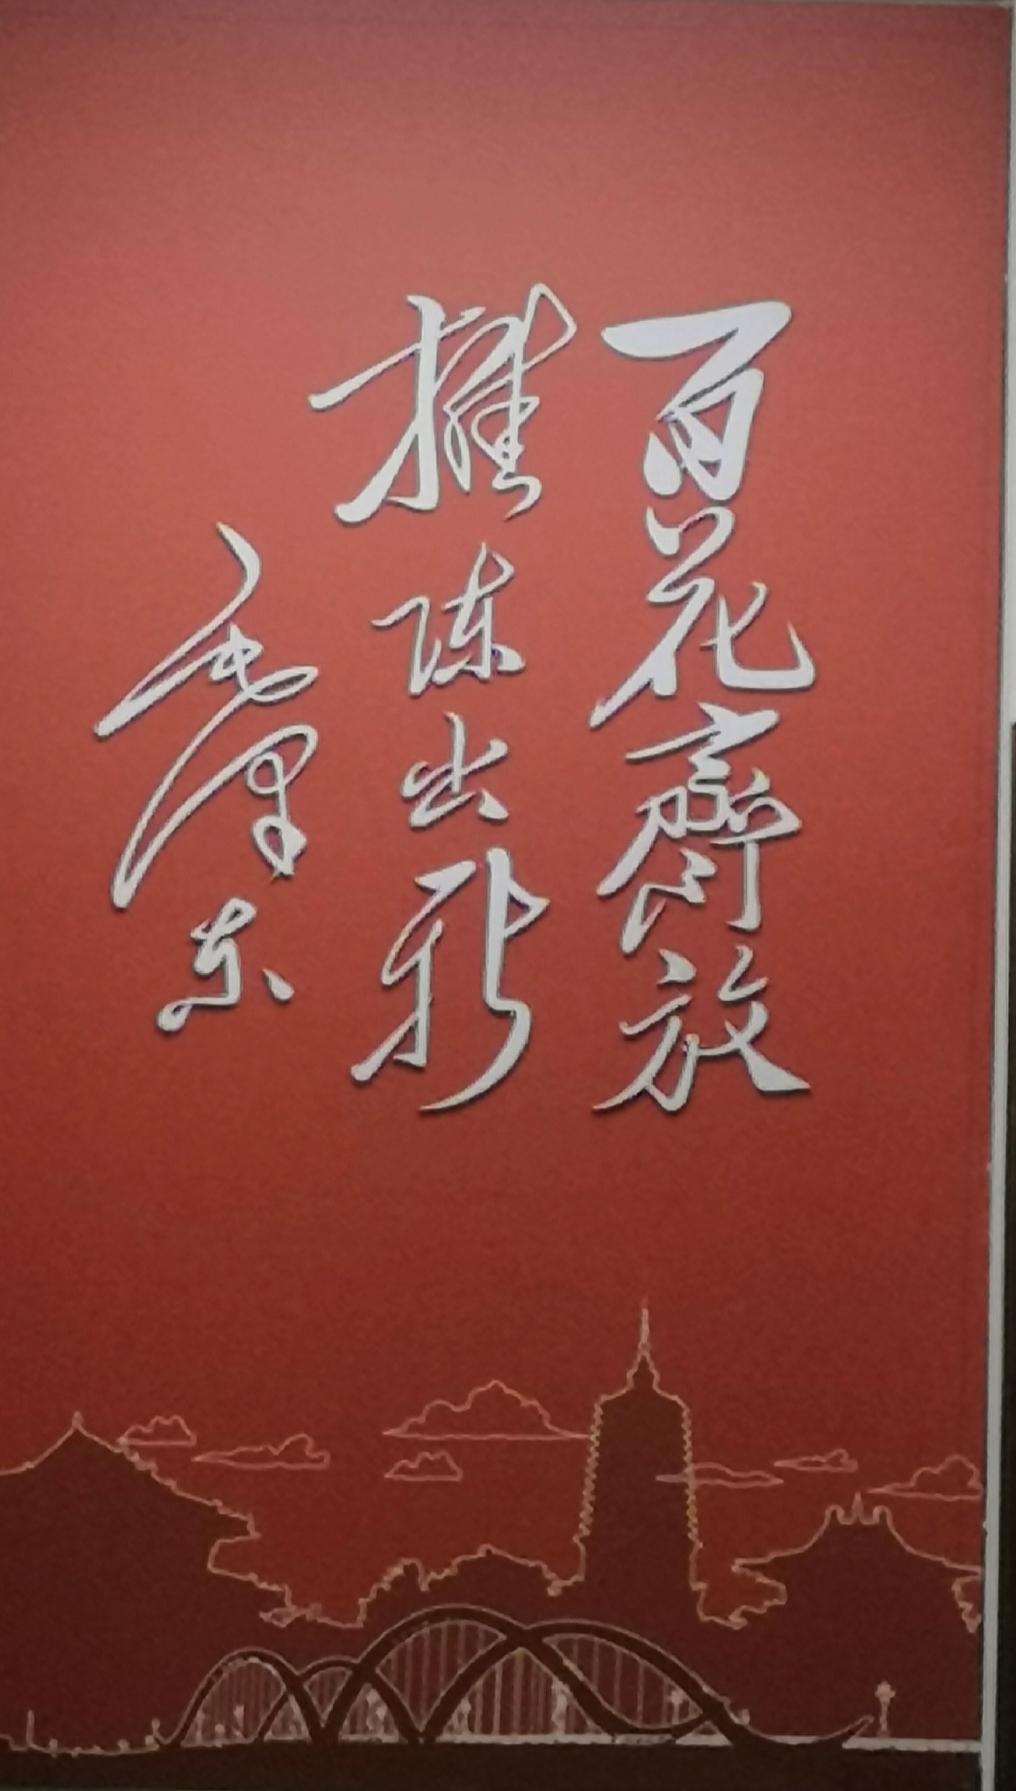 百花齊放
推陈出新
毛澤东